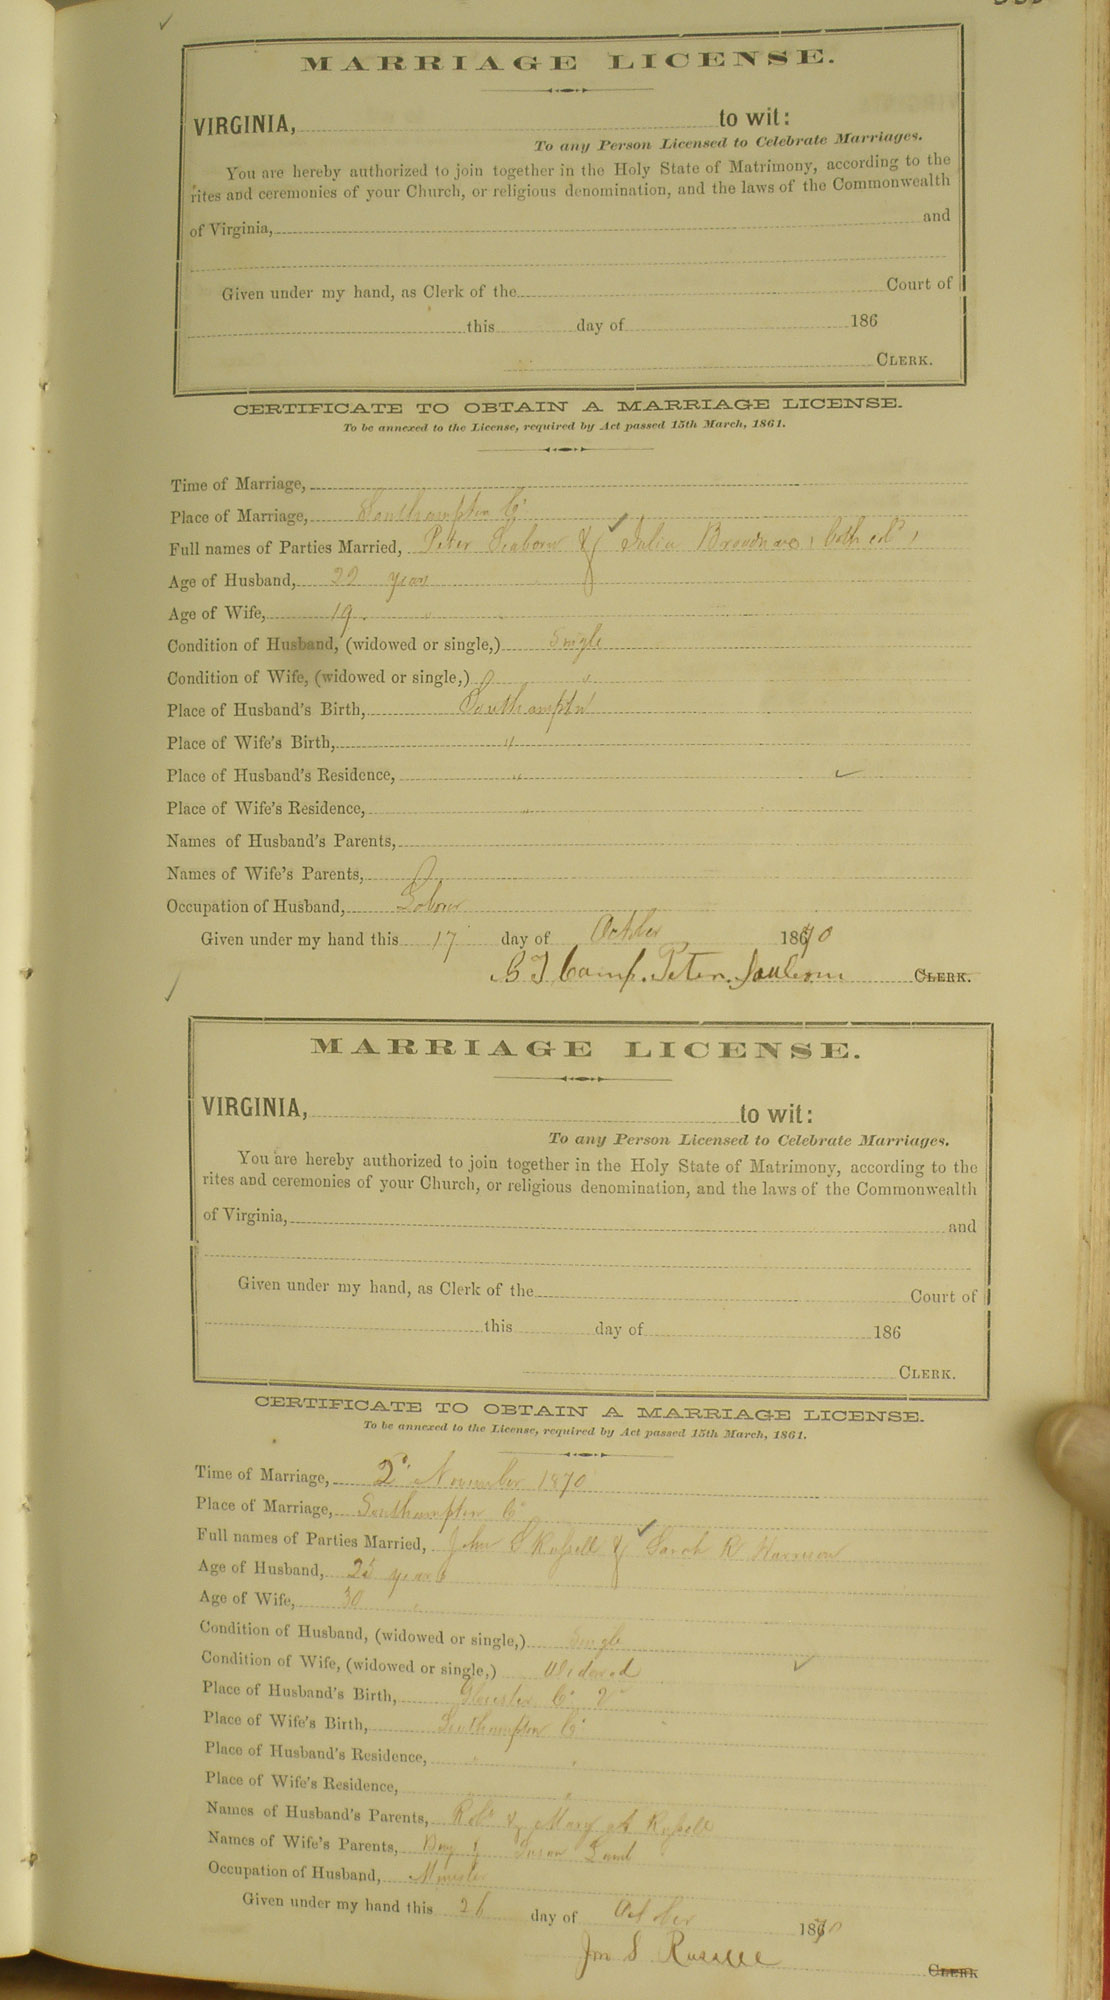 MARRIAGE LICENSE.
VIRGINIA, to wit:
To any Person Licensed to Celebrate Marriages.
You are hereby authorized to join together in the Holy State of Matrimony, according to the
rites and ceremonies of your Church, or religious denomination, and the laws of the Commonwealth
of Virginia, and
Given under my hand, as Clerk of the Court of
this day of 186
CLERK.
CERTIFICATE TO OBTAIN A MARRIAGE LICENSE.
To be annexed to the License, required by Act passed 15th March, 1861.
Time of Marriage,
Place of Marriage, Southampton Co
Full names of Parties Married, Peter Seaborn & Julia Broadnax, both cold,
Age of Husband, 22 years
Age of Wife, 19. "
Condition of Husband, (widowed or single,) Single
Condition of Wife, (widowed or single,) "
Place of Husband's Birth, Southampton
Place of Wife's Birth, "
Place of Husband's Residence, "
Place of Wife's Residence, "
Names of Husband's Parents,
Names of Wife's Parents,
Occupation of Husband, Laborer
Given under my hand this 17 day of October 1870
Peter CLERK.
MARRIAGE LICENSE.
VIRGINIA, to wit:
To any Person Licensed to Celebrate Marriages.
You are hereby authorized to join together in the Holy State of Matrimony, according to the
rites and ceremonies of your Church, or religious denomination, and the laws of the Commonwealth
of Virginia, and
Given under my hand, as Clerk of the Court of
this day of 186
CLERK.
CERTIFICATE TO OBTAIN A MARRIAGE LICENSE.
To be annexed to the License, required by Act passed 15th March, 1861.
Time of Marriage, 2d November 1870
Place of Marriage, Southampton Co
Full names of Parties Married, John S Russell & Sarah R Harrison
Age of Husband, 25 years
Age of Wife, 30 "
Condition of Husband, (widowed or single,) Single
Condition of Wife, (widowed or single,) Widowed
Place of Husband's Birth, Glocester Co Va
Place of Wife's Birth, Southampton Co
Place of Husband's Residence, " "
Place of Wife's Residence, "
Names of Husband's Parents, Robt & Mary Russell
Names of Wife's Parents, & Susan
Occupation of Husband, Minister
Given under my hand this 26 day of October 1870
Jno S Russell CLERK